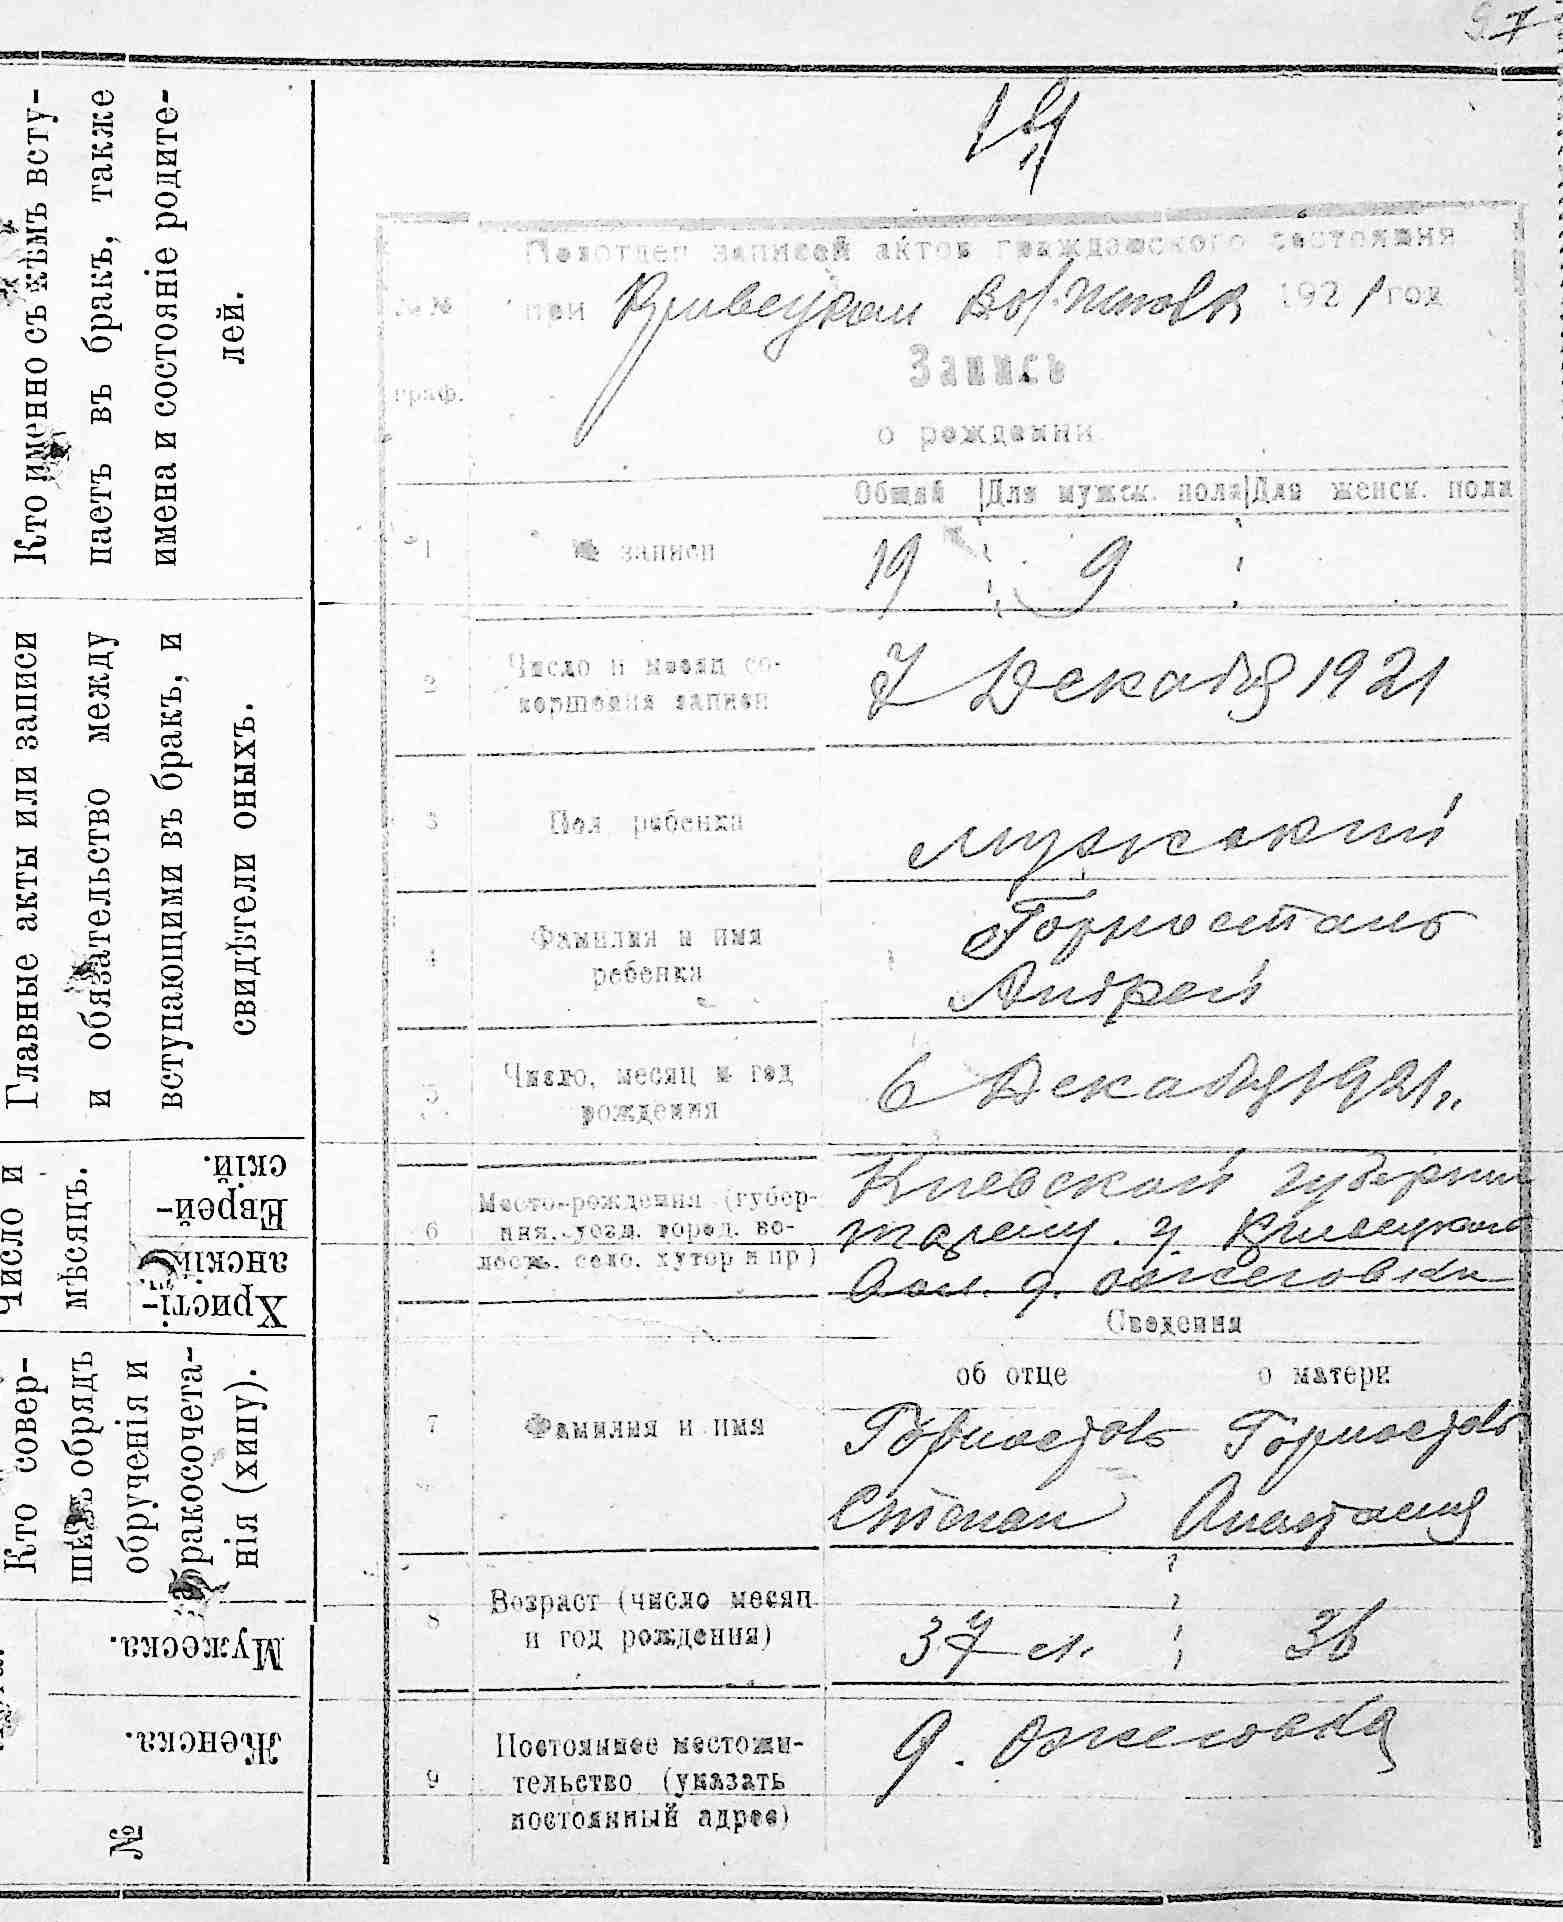 Кто именно съ кѣмъ всту-
паетъ въ бракъ, также
имена и состояніе родите-
лей.
Главные акты или записи
и обязательство между
вступающими въ бракъ, и
свидѣтели оныхъ.
Число и
мѣсяцъ.
Еврей-
скій.
Христі-
анскій.
Кто совер-
шилъ обрядъ
обрученія и
бракосочета-
нія (хипу).
Мужеска.
Женска.
№
Подотдел записей актов гражданского состояния
№№ при 1921 год
граф.
Запись
о рождении
Общий Для мужск. пола Для женск. пола
1 № записи 19 9
2 Число и месяц со-
вершения записи 7 Декабря 1921
3 Пол ребенка мужской
4 Фамилия и имя
ребенка Горносталь
Андрей
5 Число, месяц и год
рождения 6 Декабря 1921
6 Место-рождения (губер-
ния, уезд, город, во-
лость, село, хутор и пр) Киевской губернии
Сведения
об отце о матери
7 Фамилия и имя
Степан Анастасия
8 Возраст (число месяц
и год рождения) 37 36
9 Постоянное местожи-
тельство (указать
постоянный адрес)